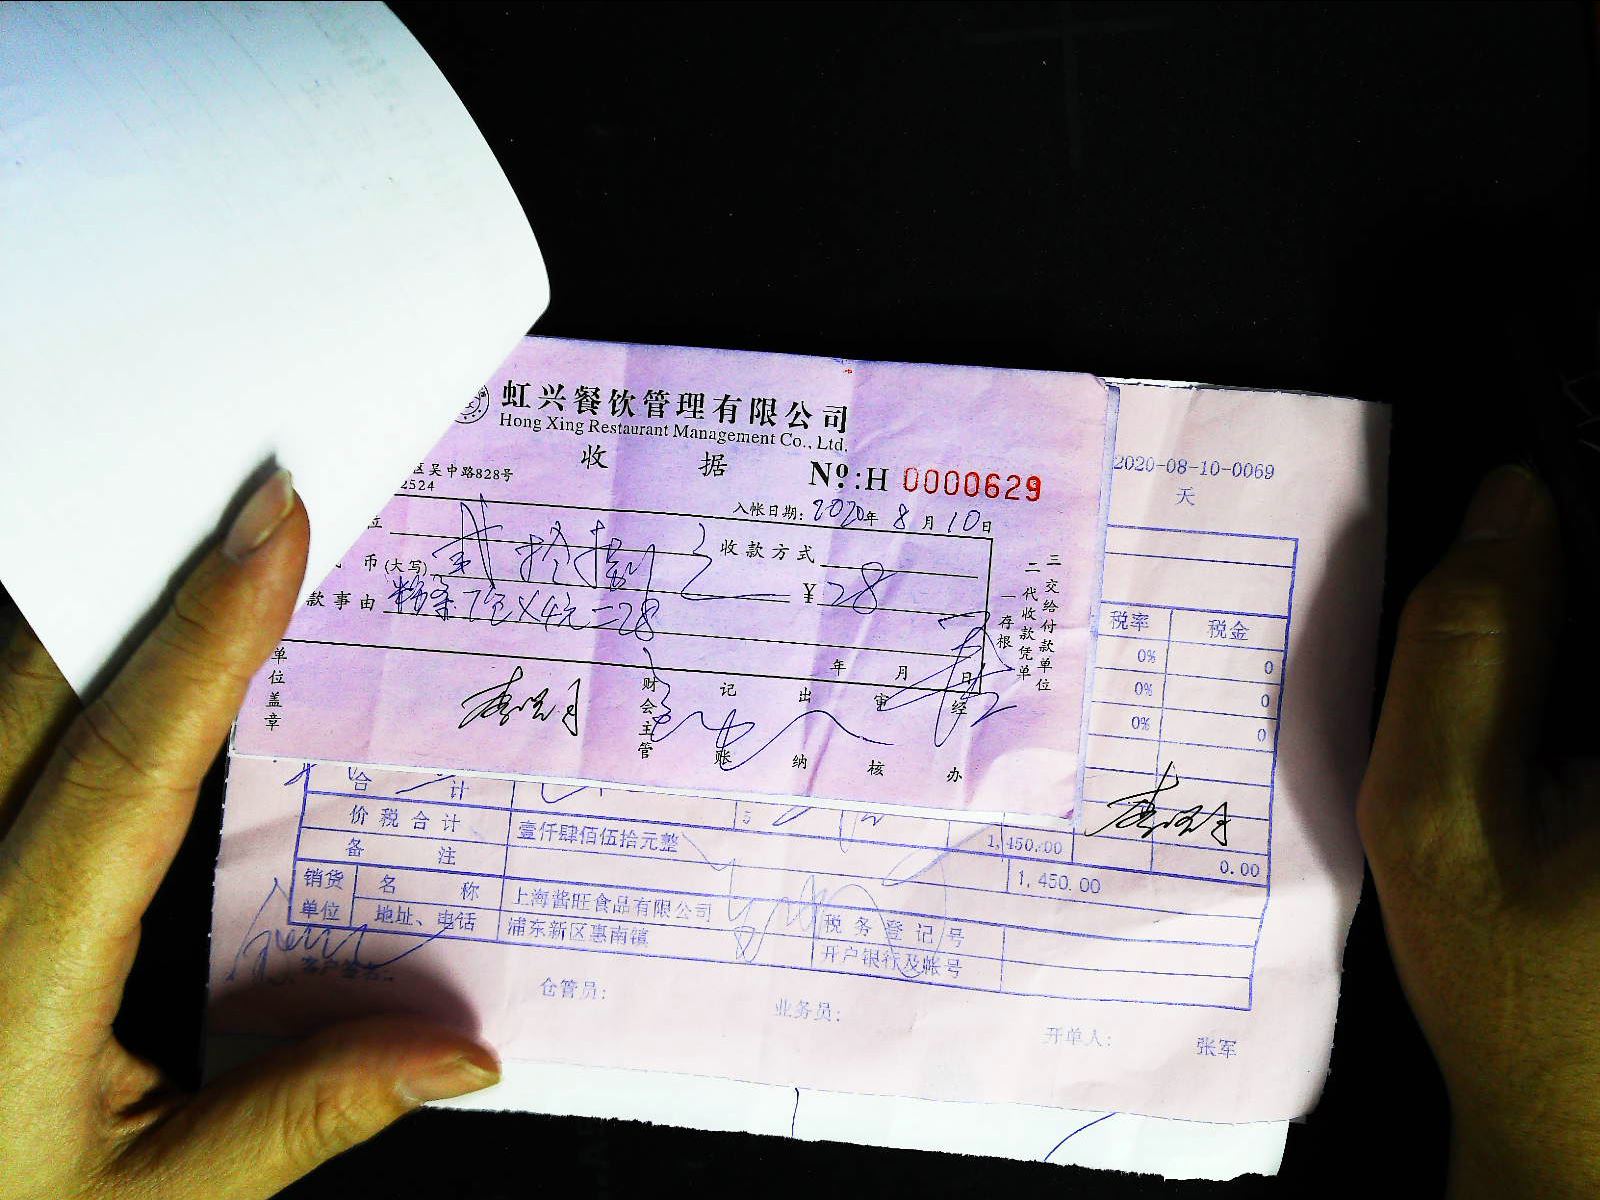 虹兴餐饮管理有限公司
Hong Xing Restaurant Management Co., Ltd.
收 据 №:H 0000629
区吴中路828号
2524
入帐日期: 2020年 8 月 10 日
位 收款方式
币(大写) 贰拾捌元 ¥ 28
款事由 7包×4元=28
年 月 日
一存根
二代收款凭单
三交给付款单位
单位盖章
财会主管 记账 出纳 审核 经办
2020-08-10-0069
天
税率 税金
0% 0
0% 0
0% 0
合 计 1,450.00 0.00
价税合计 壹仟肆佰伍拾元整 1,450.00
备 注
销货单位 名 称 上海酱旺食品有限公司 税务登记号
地址、电话 浦东新区惠南镇 开户银行及帐号
仓管员: 业务员: 开单人: 张军